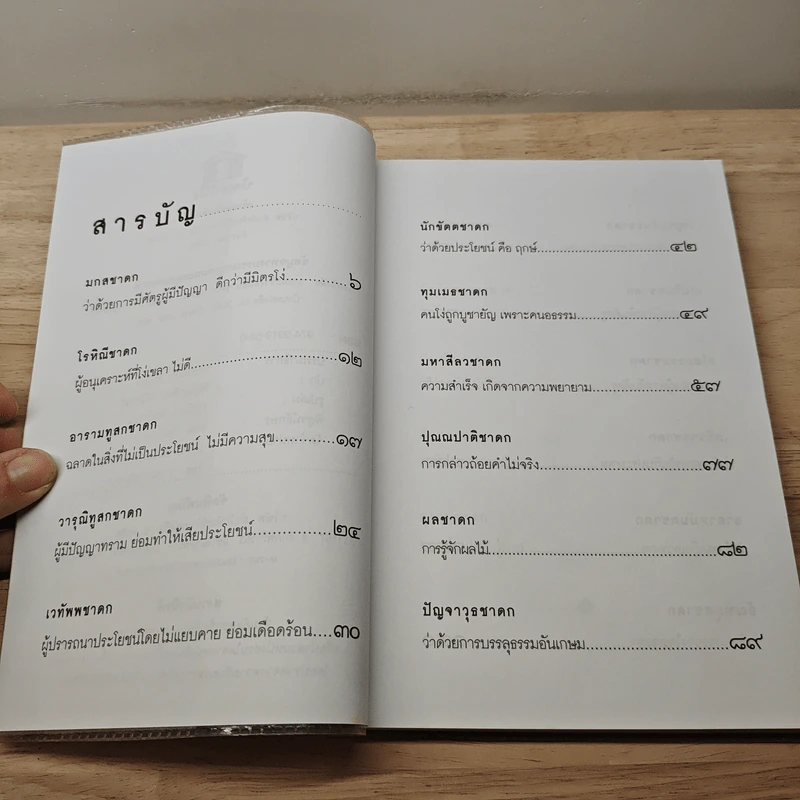 สารบัญ
มกสชาดก
ว่าด้วยการมีศัตรูผู้มีปัญญา ดีกว่ามีมิตรโง่..............๖
โรหิณีชาดก
ผู้อนุเคราะห์ที่โง่เขลา ไม่ดี..............................๑๒
อารามทูสกชาดก
ฉลาดในสิ่งที่ไม่เป็นประโยชน์ ไม่มีความสุข.............๑๗
วารุณิทูสกชาดก
ผู้มีปัญญาทราม ย่อมทำให้เสียประโยชน์..................๒๔
เวทัพพชาดก
ผู้ปรารถนาประโยชน์โดยไม่แยบคาย ย่อมเดือดร้อน....๓๐
นักขัตตชาดก
ว่าด้วยประโยชน์ คือ ฤกษ์.................................๔๒
ทุมเมธชาดก
คนโง่ถูกบูชายัญ เพราะคนอธรรม..........................๔๙
มหาสีลวชาดก
ความสำเร็จ เกิดจากความพยายาม.........................๕๗
ปุณณปาติชาดก
การกล่าวถ้อยคำไม่จริง........................................๗๗
ผลชาดก
การรู้จักผลไม้.....................................................๘๒
ปัญจาวุธชาดก
ว่าด้วยการบรรลุธรรมอันเกษม...............................๘๙